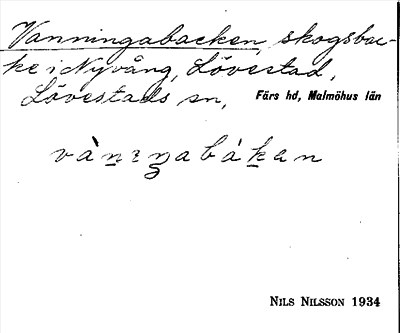 Vanningabacken, skogsbac-
ke i Nyvång, Lövestad,
Lövestads sn, Färs hd, Malmöhus län
vànıŋabákan
NILS NILSSON 1934